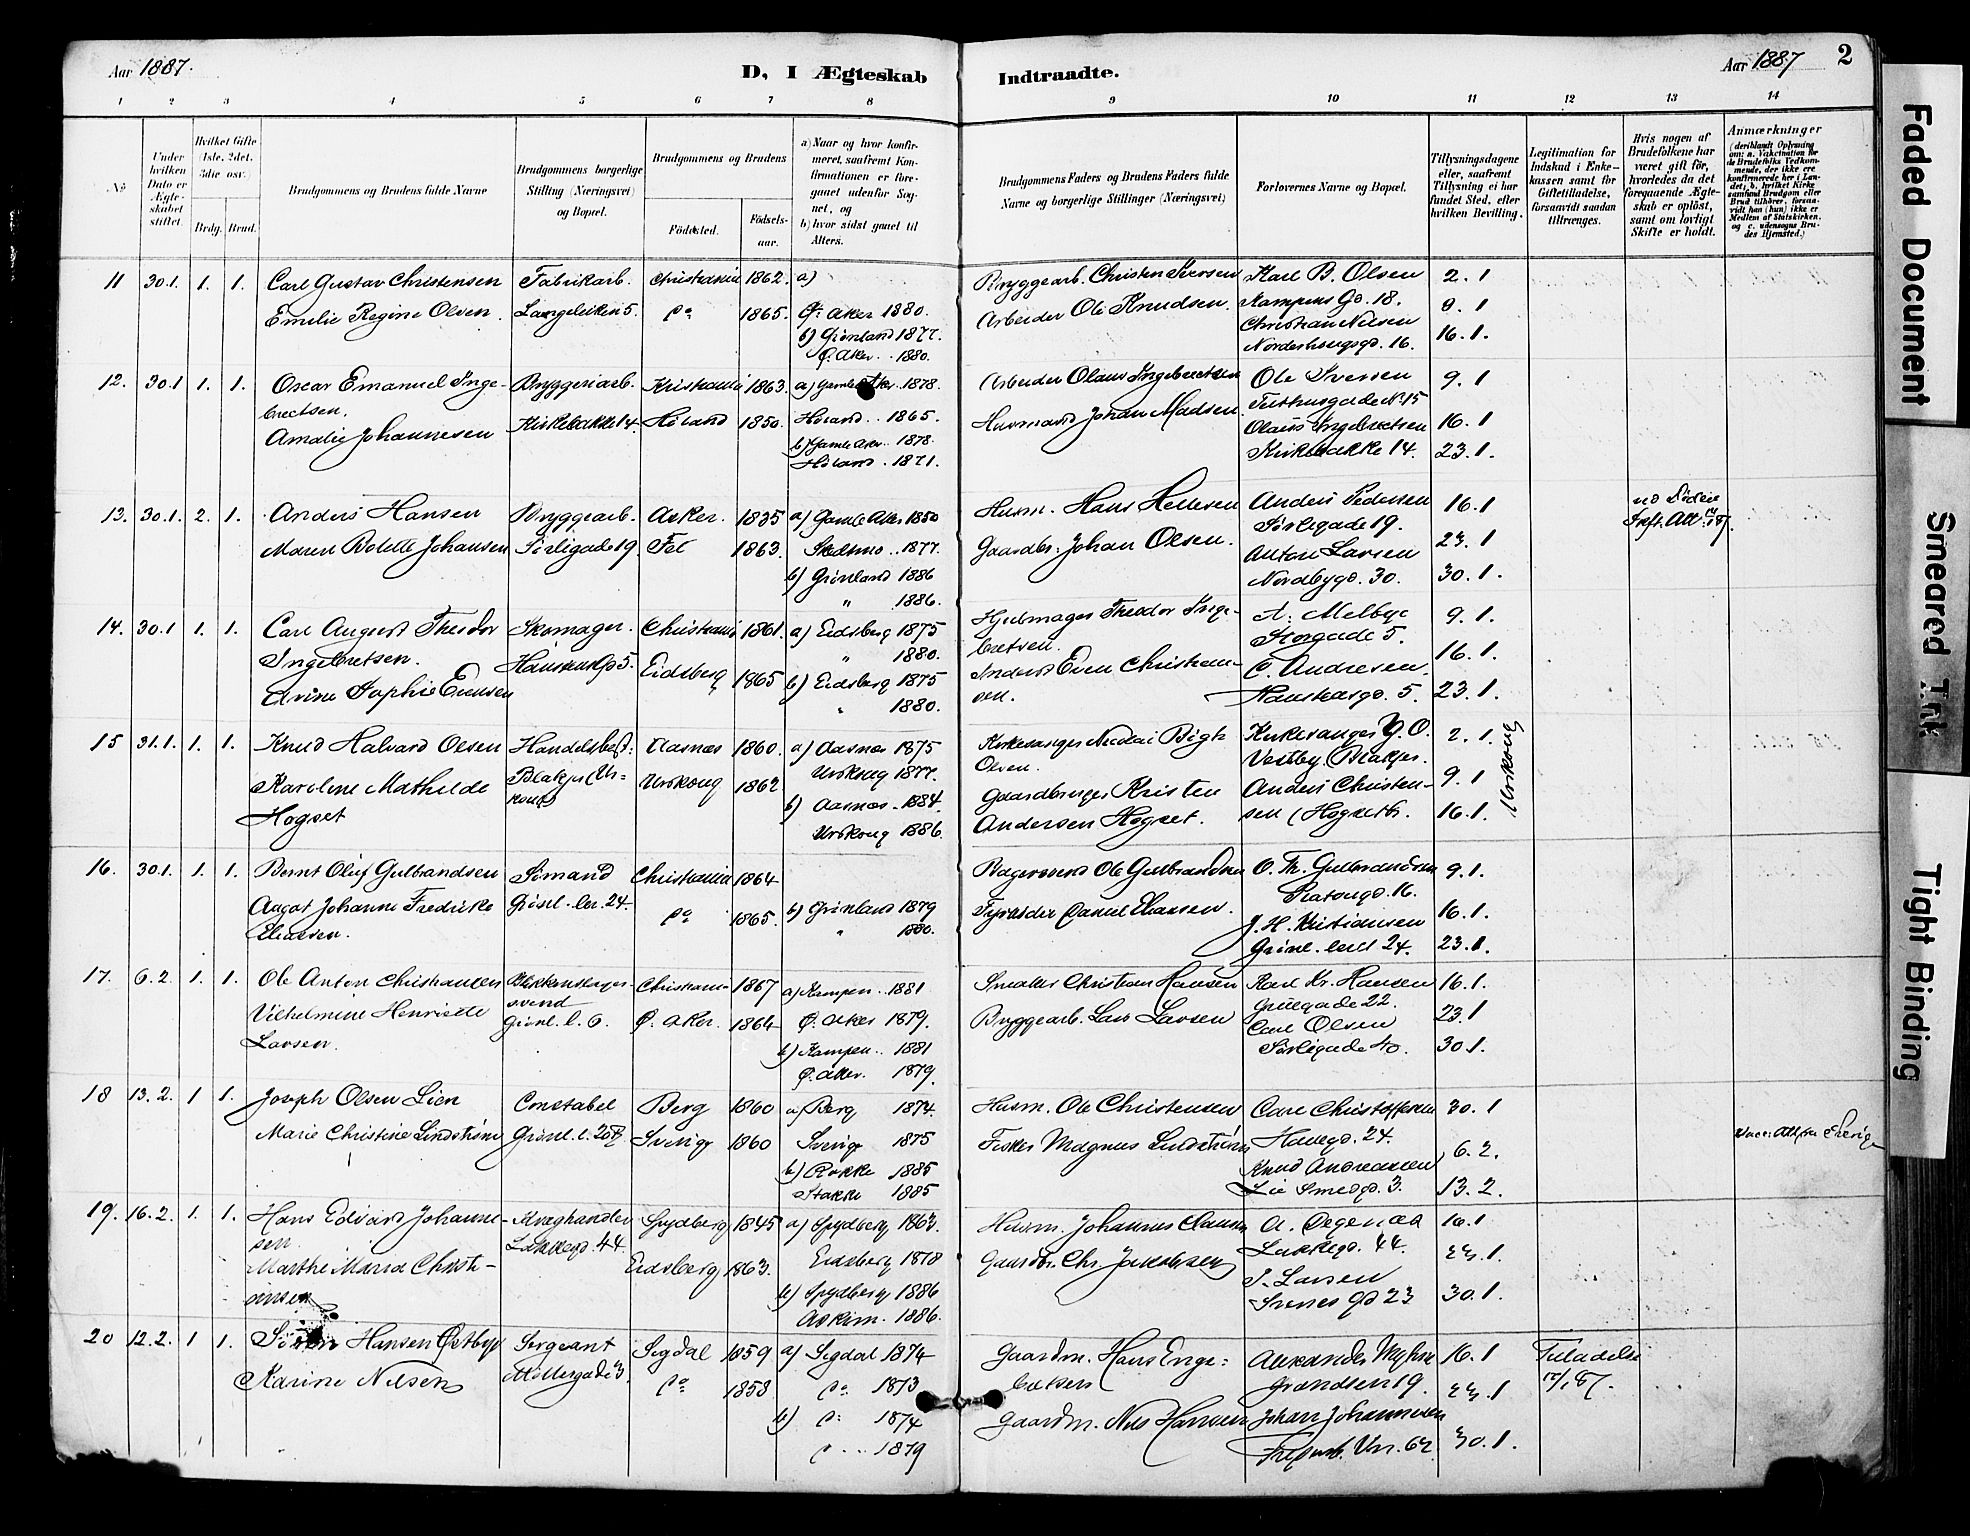 Aar 1887.
D, I Ægteskab
Indtraadte.
Aar 1887
2
1 2 3 4 5 6 7 8 9 10 11 12 13 14
No
Under hvilken Dato er Ægteskabet stiftet.
Hvilket Gifte (1ste. 2det. 3die osv.)
Brdg. Brud.
Brudgommens og Brudens fulde Navne
Brudgommens borgerlige Stilling (Næringsvei) og Bopæl.
Brudgommens og Brudens
Födested.
Födselsaar.
a) Naar og hvor konfirmeret, saafremt Konfirmationen er foregaaet udenfor Sognet, og
b) hvor sidst gaaet til Alters.
Brudgommens Faders og Brudens Faders fulde Navne og borgerlige Stillinger (Næringsvei)
Forlovernes Navne og Bopæl.
Tillysningsdagene eller, saafremt Tillysning ei har fundet Sted, efter hvilken Bevilling.
Legitimation for Indskud i Enkekassen samt for Giftetilladelse, forsaavidt saadan tiltrænges.
Hvis nogen af Brudefolkene har været gift för, hvorledes da det foregaaende Ægteskab er oplöst, samt om lovligt Skifte er holdt.
Anmærkninger (deriblandt Oplysning om: a. Vakcination for de Brudefolks Vedkommende, der ikke ere konfirmerede her i Landet; b. hvilket Kirkesamfund Brudgom eller Brud tilhörer, forsaavidt han (hun) ikke er Medlem af Statskirken, og c. udensogns Brudes Hjemsted.)
11 30.1. 1. 1. Carl Gustav Christensen Fabrikarb. Christiania 1862. a) Bryggearb. Christen Iversen Karl B. Olsen 2.1
Emilie Regine Olsen Langeleiken 5. do 1865. Ø. Aker 1880. Arbeider Ole Knudsen. Kampens Gd. 18. 9.1
b) Grønland 1877. Christian Nilsen 16.1.
Ø. Aker 1880. 16.
12. 30.1 1. 1. Oscar Emanuel Inge- Bryggeriarb. Kristiania 1863. a) Gamle Aker 1878. Arbeider Olaus Ingebretsen Ole Iversen 9.1
bretsen. Kirkebakke 14. Høland 1850. Høland 1865. Husmand Johan Madsen. 15
Amalie Johannesen b) Gamle Aker 1878. Olaus Ingebretsen 16.1
Høland 1871. Kirkebakke 14. 23.1.
13. 30.1. 2. 1. Anders Hansen Bryggearb. Asker. 1835 a) Gamle Aker 1850 Husm. Hans Hellesen Anders Pedersen 16.1
Maren Bolette Johansen Sørligade 19. Fet 1863. Skedsmo 1877. Gaardbr. Johan Olsen. Sørligade 19. 23.1
b) Grønland 1886 Anton Larsen
" 1886. Nordbygd. 30. 30.1.
Skft. Att.
14. 30.1 1. 1. Carl August Theodor Skomager. Christiania 1861. a) Eidsberg 1875 Hjulmager Theodor Inge- A. Melbye 9.1.
Ingebretsen. Hauskensgd 5. Eidsberg 1865 " 1880. bretsen. Storgade 5. 16.1.
Sophie Evensen b) Eidsberg 1875 Inderst Even Christian- C. Andresen
" 1880. sen. 5. 23.1.
15 31.1. 1. 1. Knud Halvard Olsen Handelsbest. Aasnes 1860. a) Aasnes 1875 Kirkesanger Nicolai Bigh Kirkesanger G. O. 2.1.
Karoline Mathilde Blakjer (Ur- Urskoug 1862 Urskoug 1877. Olsen. Vestby, Blakjer. 9.1
Hogset koug) b) Aasnes 1884. Gaardbruger Kristen Anders Christen-
Urskoug 1886. Andersen Hogset. sen (Hogseth. 16.1.
Urskoug
16. 30.1. 1. 1. Bernt Oluf Gulbrandsen Sømand Christiania 1864 Bagersvend Ole Gulbrandsen O. Th. Gulbrandsen 9.1.
Aagot Johanne Fredrikke Grønl. ler. 24. do 1865. b) Grønland 1879 Fyrbøder Daniel Eliassen. Platougd. 16. 16.1.
Eliassen. " 1880. J. H. Kristiansen
Grønl. 24. 23.1.
17. 6.2. 1. 1. Ole Anton Christiansen Blikkenslager- Christiania 1867 a) Kampen 1881 Smed Christian Hansen Karl Kr. Hansen 16.1.
Vilhelmine Henriette svend Ø. Aker. 1864 Ø. Aker 1879. Bryggearb. Lars Larsen 22. 23.1
Larsen. Grønl. l. 6. b) Kampen 1881 Carl Olsen
Ø. Aker. 1879. Sørligade 40. 30.1.
18 13.2. 1 1. Joseph Olsen Lien Constabel Berg 1860 a) Berg 1874. Husm. Ole Christensen Carl Christoffersen 30.1
Marie Christine Lindstrøm Grønl. l. 20 Sverige 1860 Sverige 1875 Fisker Magnus Lindstrøm 24. 6.2.
b) Rokke 1885 Knud Andreassen
Stokke 1885 Smedgd. 3. 13.2.
Vacc. Att. fra Sverige
19. 16.2. 1. 1. Hans Edvard Johanne- Kvæghandler Spydberg 1845 a) Spydberg 1863. Husm. Johannes Clausen A. Degenaa 16.1
sen. Lakkegd. 44. Eidsberg 1863. Eidsberg 1878 Gaardbr. Chr. Jakobsen Lakkegd. 44. 23.1.
Marthe Maria Christi- b) Spydberg 1886 S. Larsen
ansen Askim. 1886. 23 30.1.
20 12.2. 1 1. Søren Hansen Østbye Sergeant Sigdal 1859 a) Sigdal 1874 Gaardm. Hans Enge- Alexander Myhre 16.1 Tilladelse
Karine Nilsen Møllergade 3. do 1858. do 1873 bretsen Grændsen 19. 23.1
b) do 1874 Gaardm. Nils Hansen Johan Johannesen
do 1879 62 30.1.
Faded Document
Smeared Ink
Tight Binding